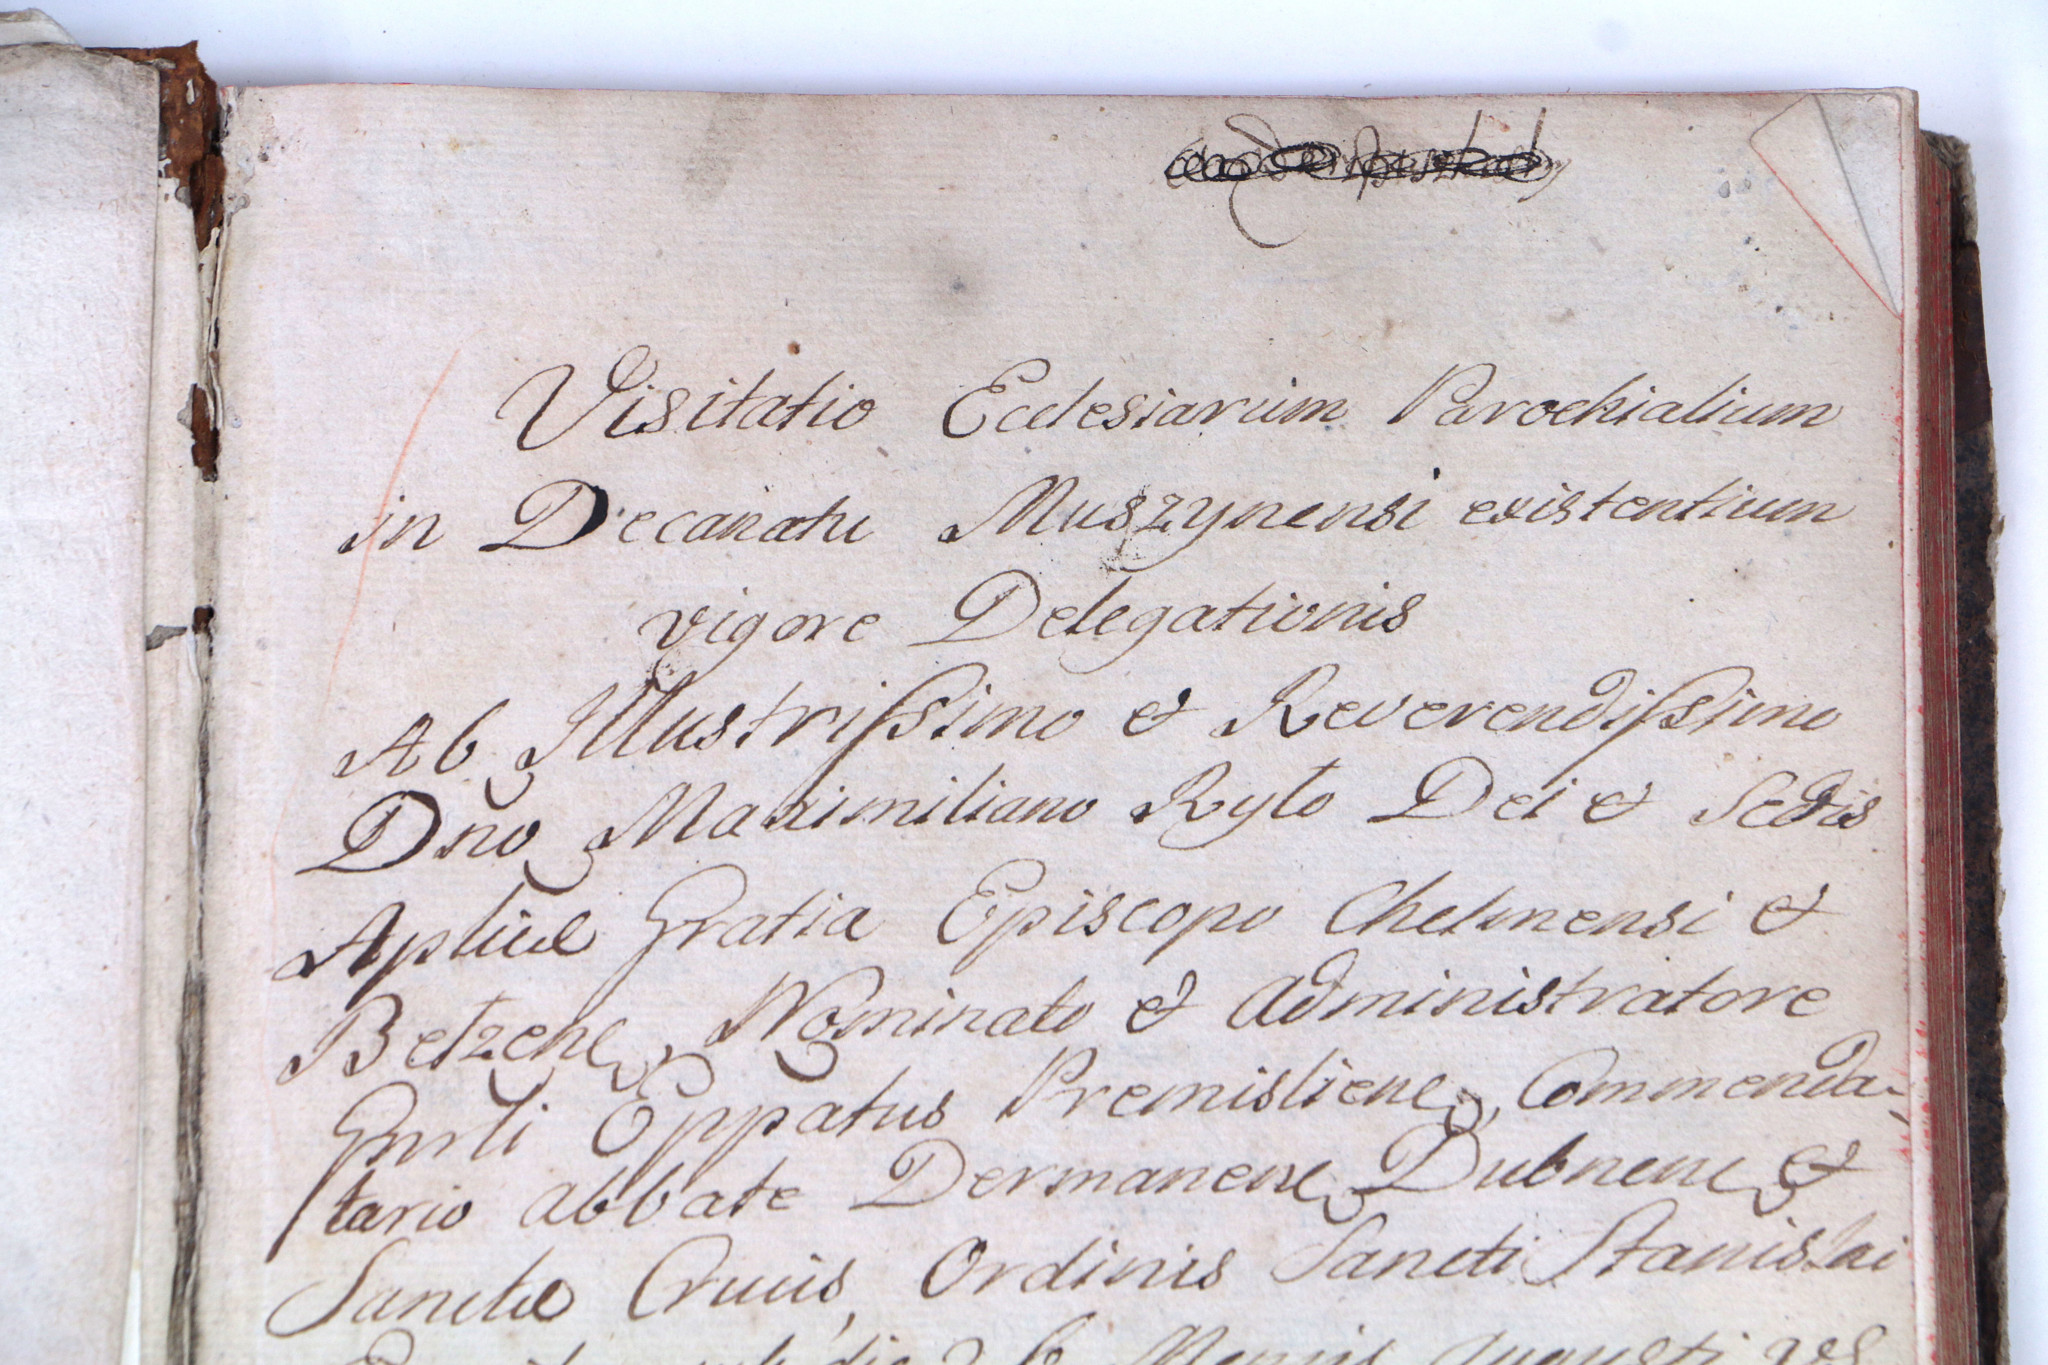 Visitatio Ecclesiarum Parochialium
in Decanatu Muszynensi existentium
vigore Delegationis
Ab Illustrissimo & Reverendissimo
Dno Maximiliano Ryło Dei & Sedis
Aplicæ Gratia Episcopo Chelmensi &
Bełzene Nominato & Administratore
Gnrli Eppatus Premisliene, Commenda-
tario abbate Dermanene Dubnene &
Sanctæ Crucis, Ordinis Sancti Stanislai
die Mensis Augusti